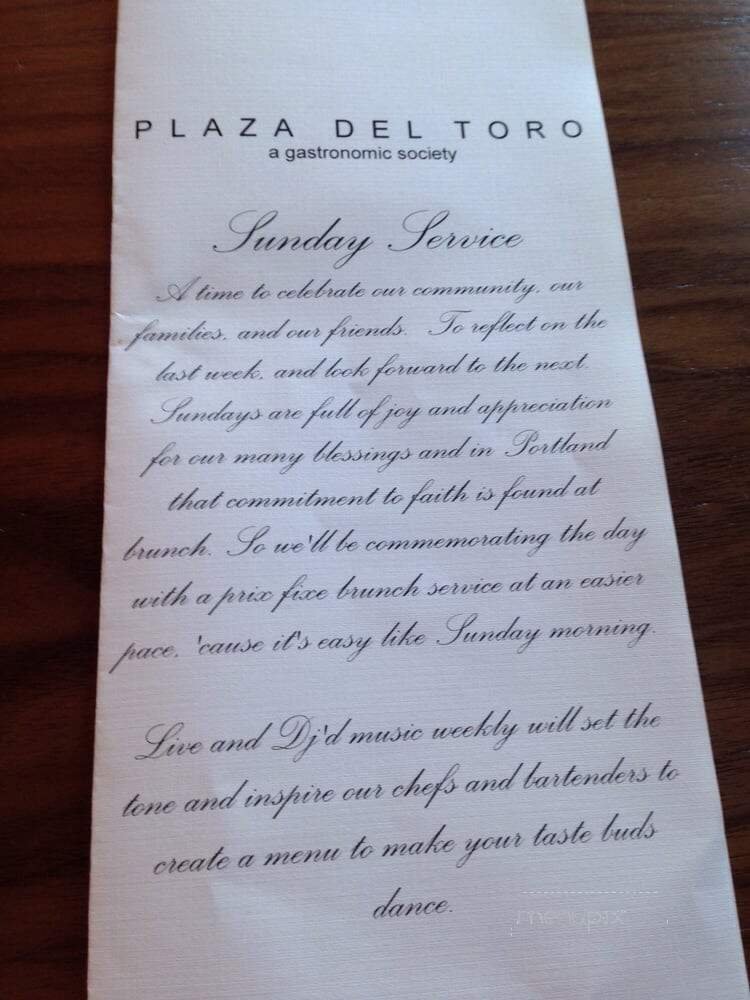 PLAZA DEL TORO
a gastronomic society
Sunday Service
A time to celebrate our community, our
families, and our friends. To reflect on the
last week, and look forward to the next.
Sundays are full of joy and appreciation
for our many blessings and in Portland
that commitment to faith is found at
brunch. So we'll be commemorating the day
with a prix fixe brunch service at an easier
pace, 'cause it's easy like Sunday morning.
Live and Dj'd music weekly will set the
tone and inspire our chefs and bartenders to
create a menu to make your taste buds
dance.
menupix